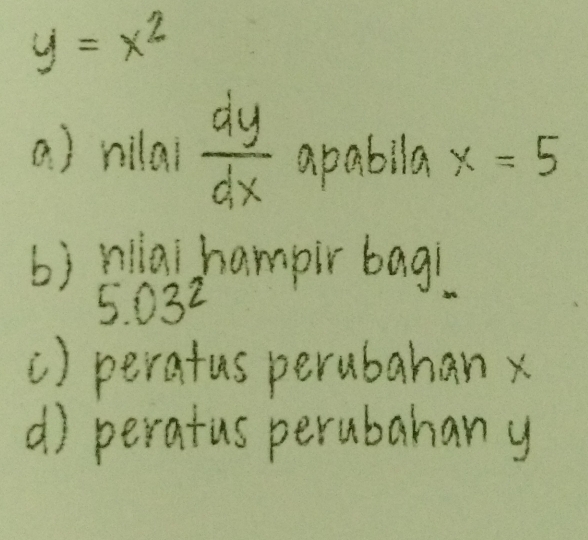 y = x²
a) nilai dy/dx apabila x = 5
b) nilai hampir bagi
5.03²
c) peratus perubahan x
d) peratus perubahan y